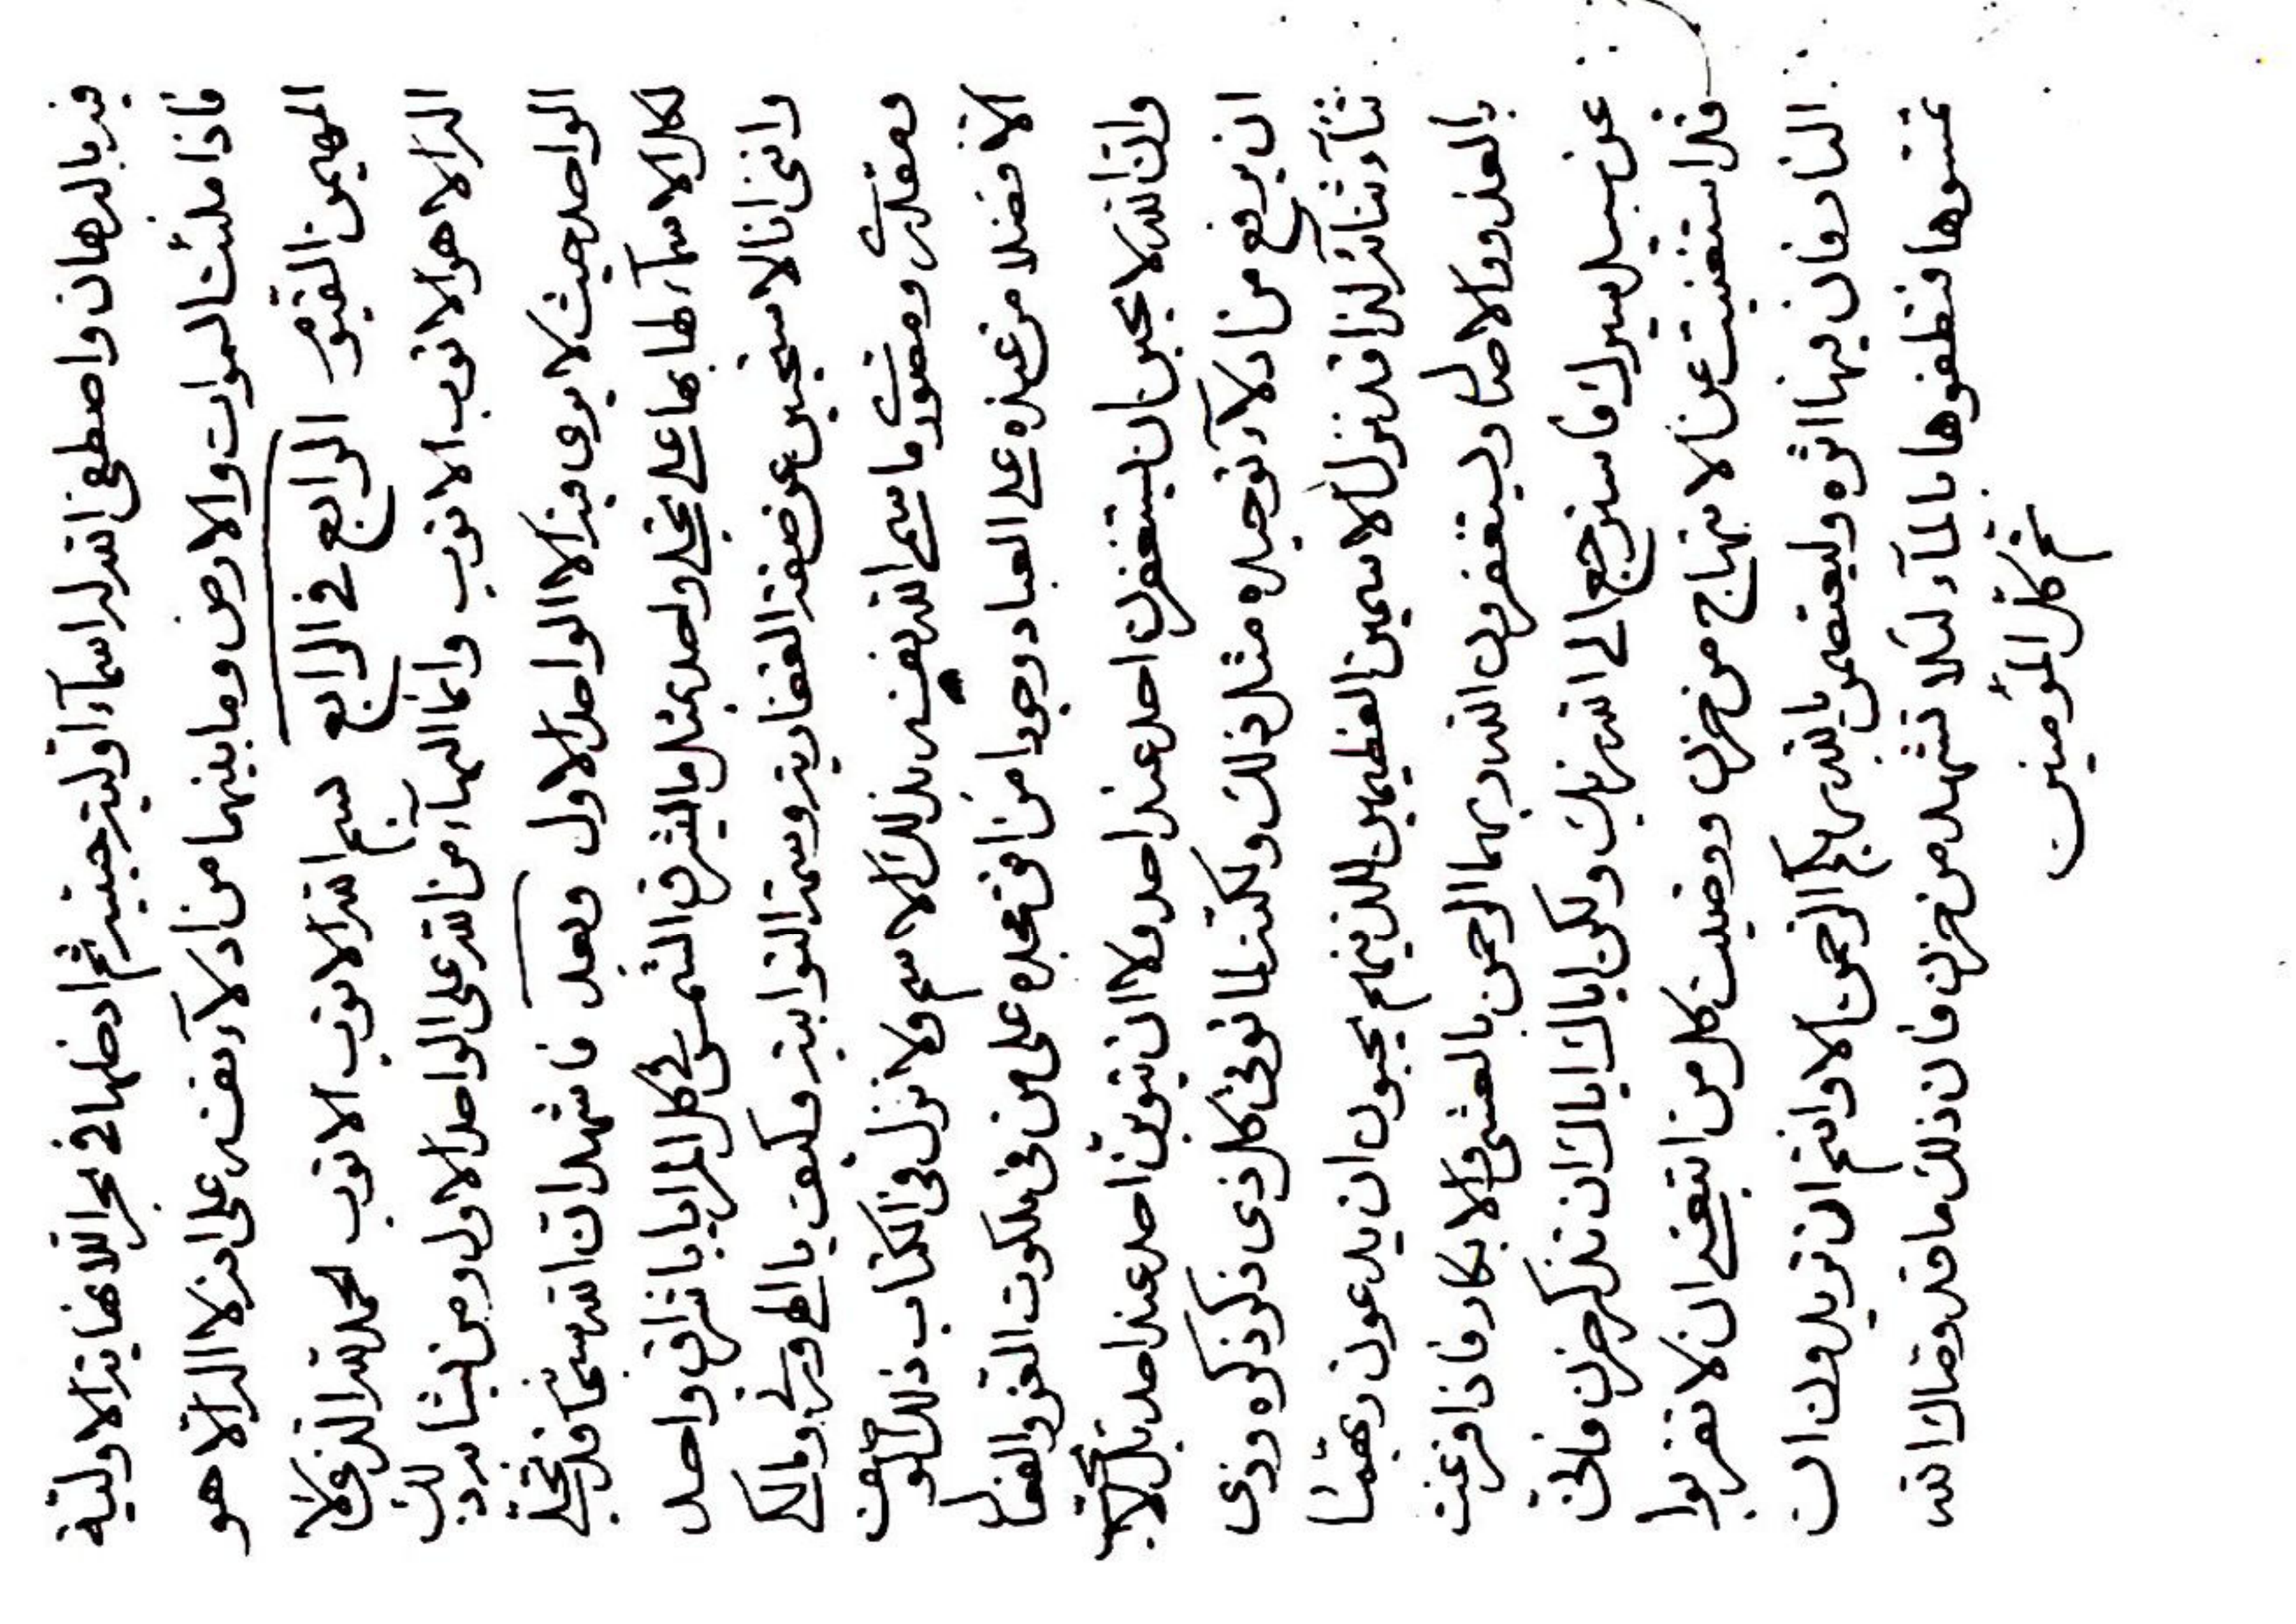 قد بالدهان واصطفی الله لد اسماء اولیته حینیته ثم ادخلها فی بحر اللانهایة الاولیة
فاذا ملئت السموات والارض وما بینهما من ادلاء نفسه علی انه لا اله الا هو
المهیمن القیوم الرابع فی الرابع بسم الله الاتوب الاتوب الحمد لله الذی لا
اله الا هو الاتوب الاتوب وانما البهاء من الله علی الواحد الاول ومن یشابه ذلک
الواحد حیث لا یری فیه الا الواحد الاول وبعد فاشهد ان الله سبحانه قد تجلی
لکل الاسماء لها بها علی تجلی واحد بمثل ما اشرق الشمس فی کل المرایا باشراق واحد
واننی انا لاستحیین عن صفة الغفاریة وسمة التوابیة فکیف یا الهی وربی ومالکی
ومقدری ومصوری ما سمی الله نفسه بذلک الاسم ولا نزل فی الکتاب ذلک الوصف
الا فضلا من عنده علی العباد وجودا من افق مجده علی من فی ملکوت العز والفعال
وان الله لا یحبن ان یستغفرن احد عند احد ولا ان یتوبن احد عند احد بل لا یحب
ان یرفع من ادلاء توحیده مثل ذلک ولکنه لما توفی کل ذی ذکر ذکره وذی
ثناء ثنائه لذا قد نزل الاسمین العظیمین للذینهم یحبون ان یدعون ربهما
بالغدو والاصال ویستغفرون الله ربهما الرحمن بالعشی والابکار فاذا فرغت
عن سبیل سیرک فاسترجع الی الله ربک ولکن ایاک ایاک ان تذکر حزن فانی
قد استغنیت عن الابتهاج من حزن ورضیت کل من اتبعنی ان لا تقربوا
النار فان فیها اثره ولیعتصمن بالله ربکم الرحمن الا وانتم ان تریدون ان
تمسوها فنظفوها بالماء لئلا تشهد من حزن فان ذلک ما قد وصاک الله
ثم کل المؤمنین